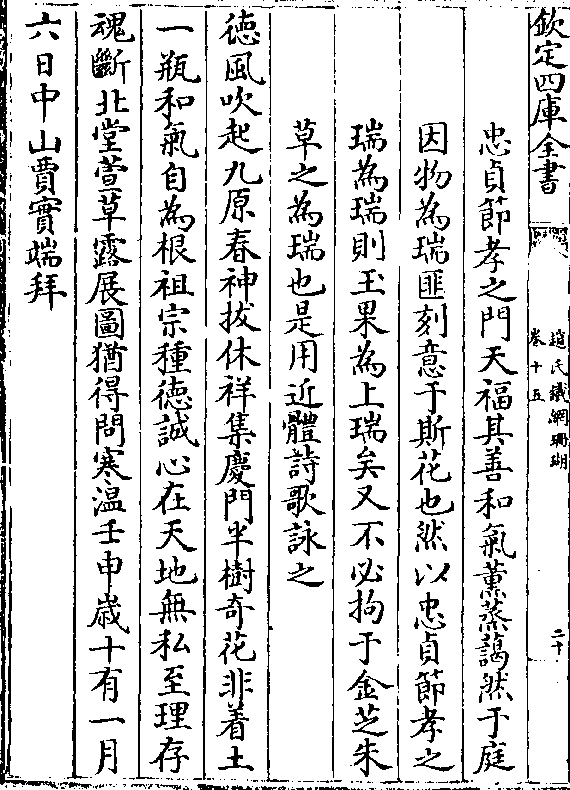 欽定四庫全書
趙氏鐵網珊瑚
卷十五
二十
忠貞節孝之門天福其善和氣薰蒸藹然于庭
因物為瑞匪刻意于斯花也然以忠貞節孝之
瑞為瑞則玉果為上瑞矣又不必拘于金芝朱
草之為瑞也是用近體詩歌詠之
徳風吹起九原春神拔休祥集慶門半樹奇花非着土
一瓶和氣自為根祖宗種徳誠心在天地無私至理存
魂斷北堂萱草露展圖猶得問寒温壬申歳十有一月
六日中山賈實端拜